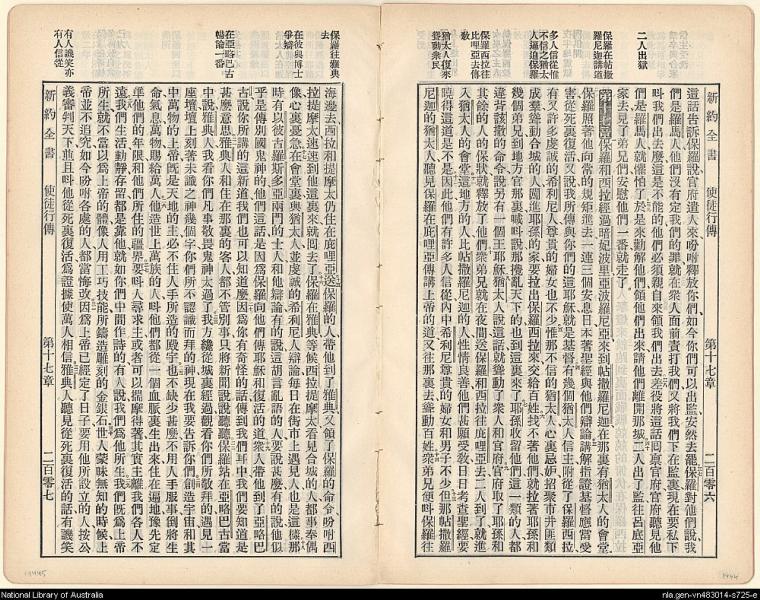 二人出獄
保羅在帖撒
羅尼迦講道
多人信從惟
不信之猶太
人逼迫保羅
保羅西拉往
比哩亞去傳
教
猶太人復來
聳動衆民
新約全書 使徒行傳 第十七章 二百零六
這話告訴保羅說官府遣人來吩咐釋放你們如今你們可以出監安然去罷保羅對他們說我
們是羅馬人他們沒有定我們的罪就在衆人面前責打我們又將我們下在監裏現在要私下
叫我們出去麼這是不能的他們必須親自來領我們出去差役將這話回禀官府官府聽見他
們是羅馬人就懼怕了於是來勸解他們領他們出來請他們離開那城二人出了監往呂底亞
家去見了弟兄們安慰他們一番就走了
第十七章保羅和西拉經過暗妃波里亞波羅尼亞來到帖撒羅尼迦在那裏有猶太人的會堂
保羅照著他向常的規矩進去一連三個安息日本著聖經與他們辯論講解指證基督應當受
害從死裏復活又說我所傳與你們的這耶穌就是基督有幾個猶太人信主附從了保羅西拉
有又許多虔誠的希利尼人尊貴的婦女也不少惟那不信的猶太人心裏忌妬招聚市井匪類
成羣聳動合城的人闖進耶孫的家要拉出保羅西拉來交給百姓找不著他們就拉著耶孫和
幾個弟兄到地方官那裏喊呌說那攪亂天下的也到這裏來了耶孫收留他們這一類的人都
違背該撒的命令說另有一個王耶穌猶太人說這話就聳動了衆人和官府官府取了耶孫和
其餘的人的保狀就釋放了他們衆弟兄就在夜間送保羅和西拉往庇哩亞去二人到了就進
入猶太人的會堂這地方的人比帖撒羅尼迦的人性情良善他們甚願受教日日考查聖經要
曉得這道是不是因此他們有許多人信從內中希利尼尊貴的婦女和男子不少但那帖撒羅
尼迦的猶太人聽見保羅在庇哩亞傳講上帝的道又往那裏去聳動百姓衆弟兄便呌保羅往
保羅往雅典
去
在彼與博士
爭辯
在亞略巴古
暢論一番
有人譏笑亦
有人信從
海邊去西拉和提摩太仍住在庇哩亞送保羅的人帶他到了雅典又領了保羅的命令吩咐西
拉提摩太速速到他這裏來就回去了保羅在雅典等候西拉提摩太看見合城的人都事奉偶
像心裏憂急在會堂裏與猶太人並虔誠的希利尼人辯論每日在街市上遇見人也是這樣那
時有以彼古羅斯多亞兩門的士人和他辯論有的說這胡言亂語的人要說甚麼有的說他似
乎是傳別國鬼神的他們這話是因爲保羅向他們傳耶穌和復活的道衆人帶他到了亞略巴
古說你所講的這新道我們也可以知道麼因爲你有奇怪的話傳到我們耳中我們要知道是
甚麼意思雅典人和住在那裏的客人都不管別事只將新聞說說聽聽保羅站在亞略巴古當
中說雅典人我看你們凡事敬畏鬼神太過了我方纔從城裏經過觀看你們所敬拜的遇見一
座壇壇上刻著未識之神幾個字你們所不認識而拜的神現在我要告訴你們創造宇宙和其
中萬物的上帝旣是天地的主必不住人手所造的殿宇也不缺少甚麼不用人手服事倒將生
命氣息萬物賜給萬人他造世上萬族的人呌他們都從一個血脈裏生出來住在遍地豫先定
準他們的年限和他們所住的疆界要呌人尋求主或者可以揣摩得著其實主離我們各人不
遠我們生活動靜存留都是靠他就如你們中間作詩的有人說我們爲他所生我們旣爲上帝
所生就不當以爲上帝的體像人用工技能所鑄造雕刻的金銀石世人蒙昧無知的時候上
帝並不追究如今吩咐各處的人都當悔改因爲上帝已經定了日子要用他所設立的人按公
義審判天下並且呌他從死裏復活爲證據使萬人相信雅典人聽見從死裏復活的話有譏笑
新約全書 使徒行傳 第十七章 二百零七
National Library of Australia
nla.gen-vn483014-s725-e